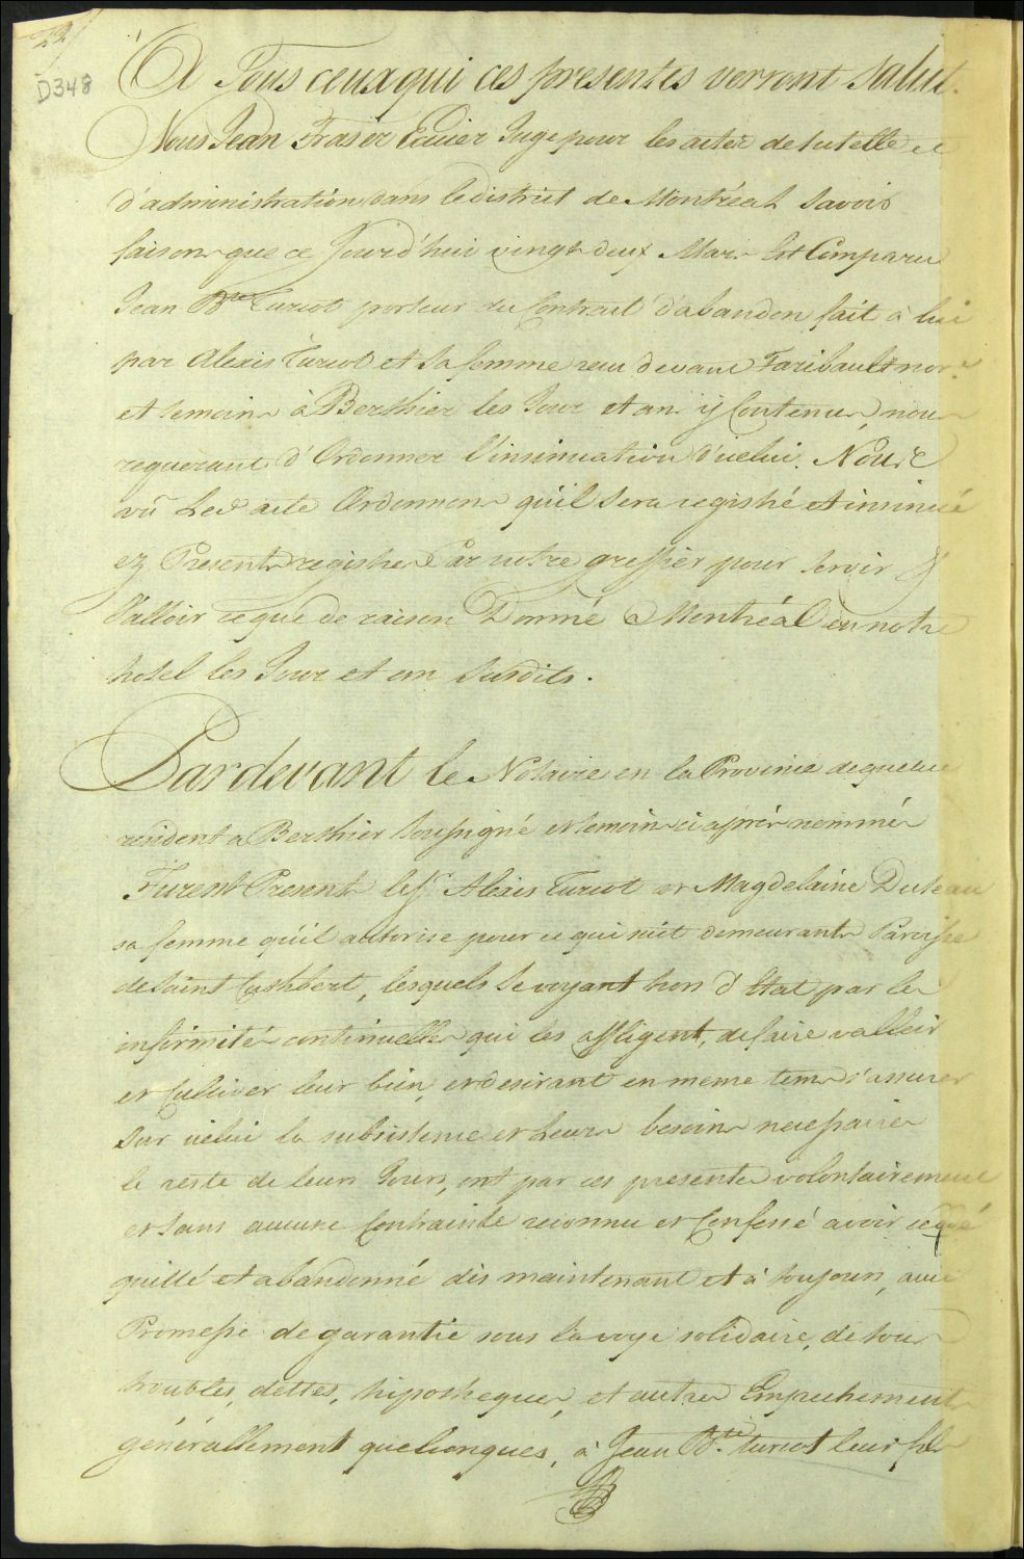 22
D348
A Tous ceux qui ces presentes verront Salut.
Nous Jean Fraser Ecuier Juge pour les actes de tutelle et
d'administration dans le district de Montréal Savoir
faisons que ce Jourd'hui vingt deux Mars Est Comparu
Jean Bte Turcot porteur du Contract d'abandon fait à lui
par Alexis Turcot et Sa femme recu devant Faribault nore
et temoins à Berthier les Jour et an y Contenus nous
requerant d'Ordonner l'insinuation d'icelui. Nous
vû Led acte Ordonnons qu'il Sera registré et insinué
ez Presents registres Par notre greffier pour Servir &
Valloir ce que de raison Donné à Montréal en notre
hotel les Jour et an Susdits.
Pardevant le Notaire en la Province de quebec
resident a Berthier Soussigné et temoins ci après nommés
Furent Presents les Sr Alexis Turcot et Magdelaine Duteau
sa femme qu'il autorise pour ce qui suit demeurants Paroisse
de Saint Cuthbert, lesquels Se voyant hors d'Etat par les
infirmités continuelles qui les affligent, de faire valloir
et Cultiver leur bien, et desirant en meme tems s'assurer
Sur icelui la subsistence et Leurs besoins necessaires
le reste de leurs Jours, ont par ces presentes volontairement
et Sans aucune Contrainte reconnu et Confessé avoir cedé
quitté et abandonné dès maintenant et à toujours, avec
Promesse de garantie sous la voye solidaire, de tous
troubles, dettes, hipotheques, et autres Empechements
générallement quelconques, à Jean Bte turcot leur fils